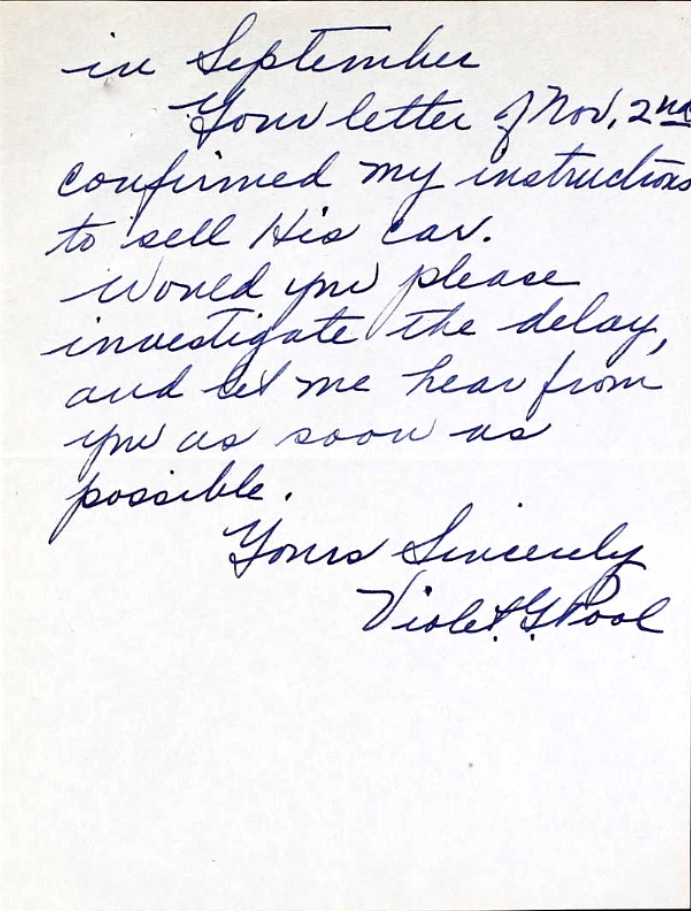 in September
Your letter of Nov, 2nd
confirmed my instructions
to sell His car.
Would you please
investigate the delay,
and let me hear from
you as soon as
possible.
Yours Sincerely
Violet G. Pool